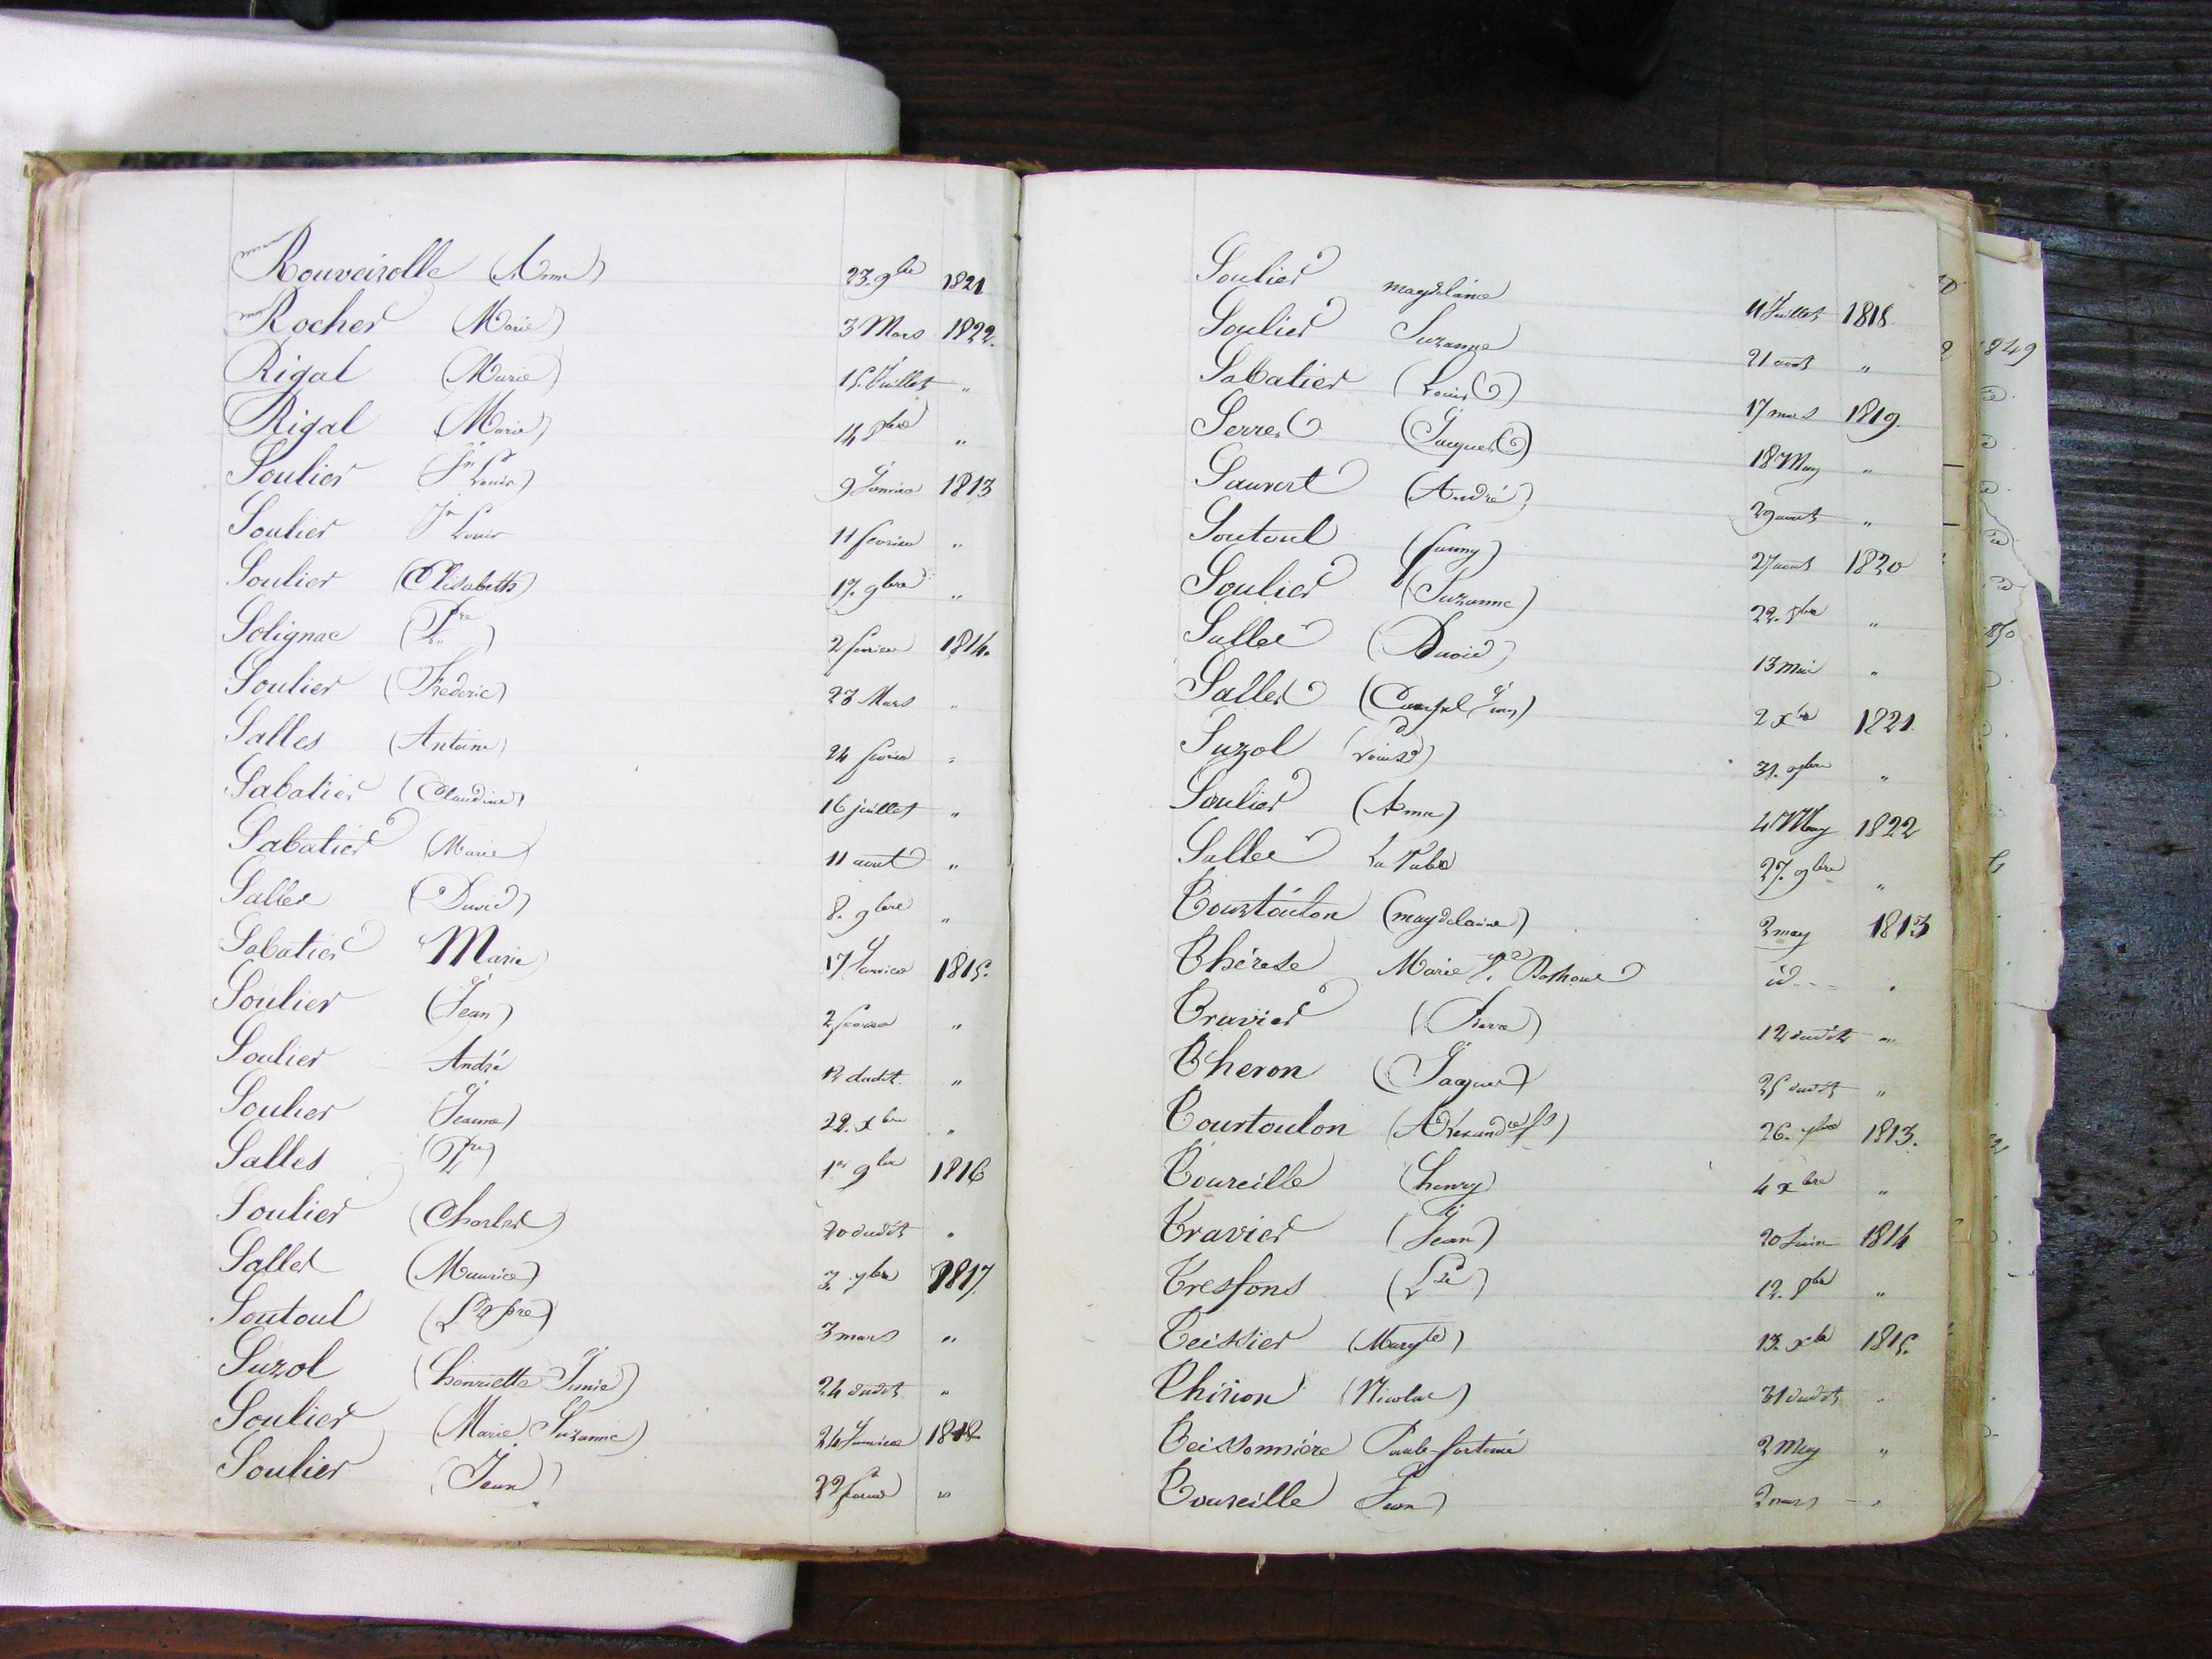 Rouveirolle (Anne) 23. 9bre 1821
Rocher (Marie) 3 Mars 1822.
Rigal (Marie) 15. Juillet "
Rigal (Marie) 14 8bre "
Soulier (Jn Louis) 9 Janvier 1813
Soulier Jn Louis 11 fevrier "
Soulier (Elisabeth) 17. 9bre "
Solignac (Pre) 2 fevrier 1814.
Soulier (Frederic) 23 Mars "
Salles (Antoine) 24 fevrier "
Sabatier (Claudine) 16 juillet "
Sabatier (Marie) 11 aout "
Salles (David) 8. 9bre "
Sabatier Marie 17 Janvier 1815.
Soulier (Jean) 2 fevrier "
Soulier André 12 dudit "
Soulier (Jeanne) 22. xbre "
Salles (Pre) 1er 9bre 1816
Soulier (Charles) 20 dudit "
Salles (Maurice) 3. 7bre 1817.
Soutoul 3 mars "
Suzol (henriette) 24 dudit "
Soulier (Marie Suzanne) 24 Janvier 1818
Soulier (Jean) 22 "
Soulier magdelaine 11 Juillet 1818.
Soulier Suzanne 21 aout "
Sabatier (Louis) 17 mars 1819.
Serres (Jacques) 18 May "
Sauvert (André) 29 aout "
Soutoul (fanny) 27 aout 1820
Soulier (Suzanne) 22. "
Salles (David) 13 mai "
Salles 2 xbre 1821.
Suzol (Louis) 31. "
Soulier (Anne) 4 May 1822
Salles 27. 9bre "
Tourtoulon (magdelaine) 2 may 1813
Thérese Marie id "
Travier 12 dudit "
Theron (Jaques) 25 dudit "
Tourtoulon (Alexandre) 26. 7bre 1813.
Toureille (henry) 4 xbre "
Travier (Jean) 20 Juin 1814
Tresfons 12. 8bre "
Teissier 13. xbre 1815.
Thirion (Nicolas) 31 dudit "
Teissonnière 2 May "
Toureille Jean 2 mars "
1849